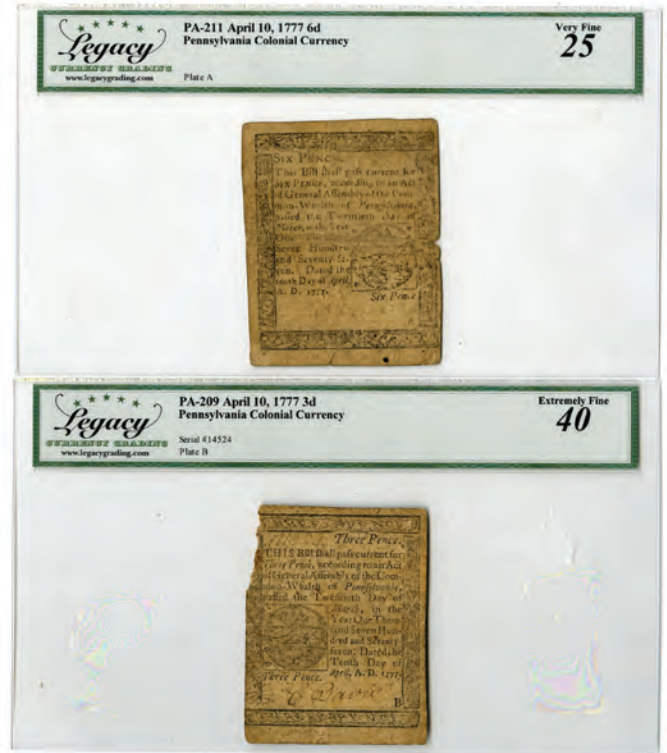 Legacy
CURRENCY GRADING
www.legacygrading.com
PA-211 April 10, 1777 6d
Pennsylvania Colonial Currency
Plate A
Very Fine
25
SIX PENCE.
This Bill shall pass current for
SIX PENCE, according to an Act
of General Assembly of the Com-
mon-Wealth of Pennsylvania,
passed the Twentieth Day of
March, in the Year
One
Seven Hundred
and Seventy-se-
ven. Dated the
tenth Day of April,
A. D. 1777.
Six Pence
Legacy
CURRENCY GRADING
www.legacygrading.com
PA-209 April 10, 1777 3d
Pennsylvania Colonial Currency
Serial #14524
Plate B
Extremely Fine
40
Three Pence.
THIS Bill shall pass current for
Three Pence, according to an Act
of General Assembly of the Com-
mon-Wealth of Pennsylvania,
passed the Twentieth Day of
March, in the
Year Our Thou-
sand Seven Hun-
dred and Seventy-
seven. Dated the
Tenth Day of
April, A. D. 1777.
Three Pence.
B